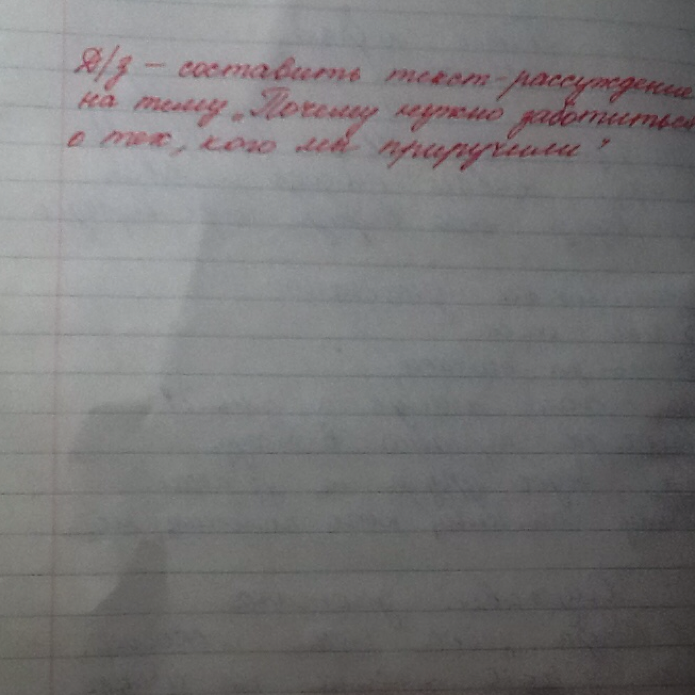 Д/з – составить текст-рассуждение
на тему „Почему нужно заботиться
о тех, кого мы приручили"